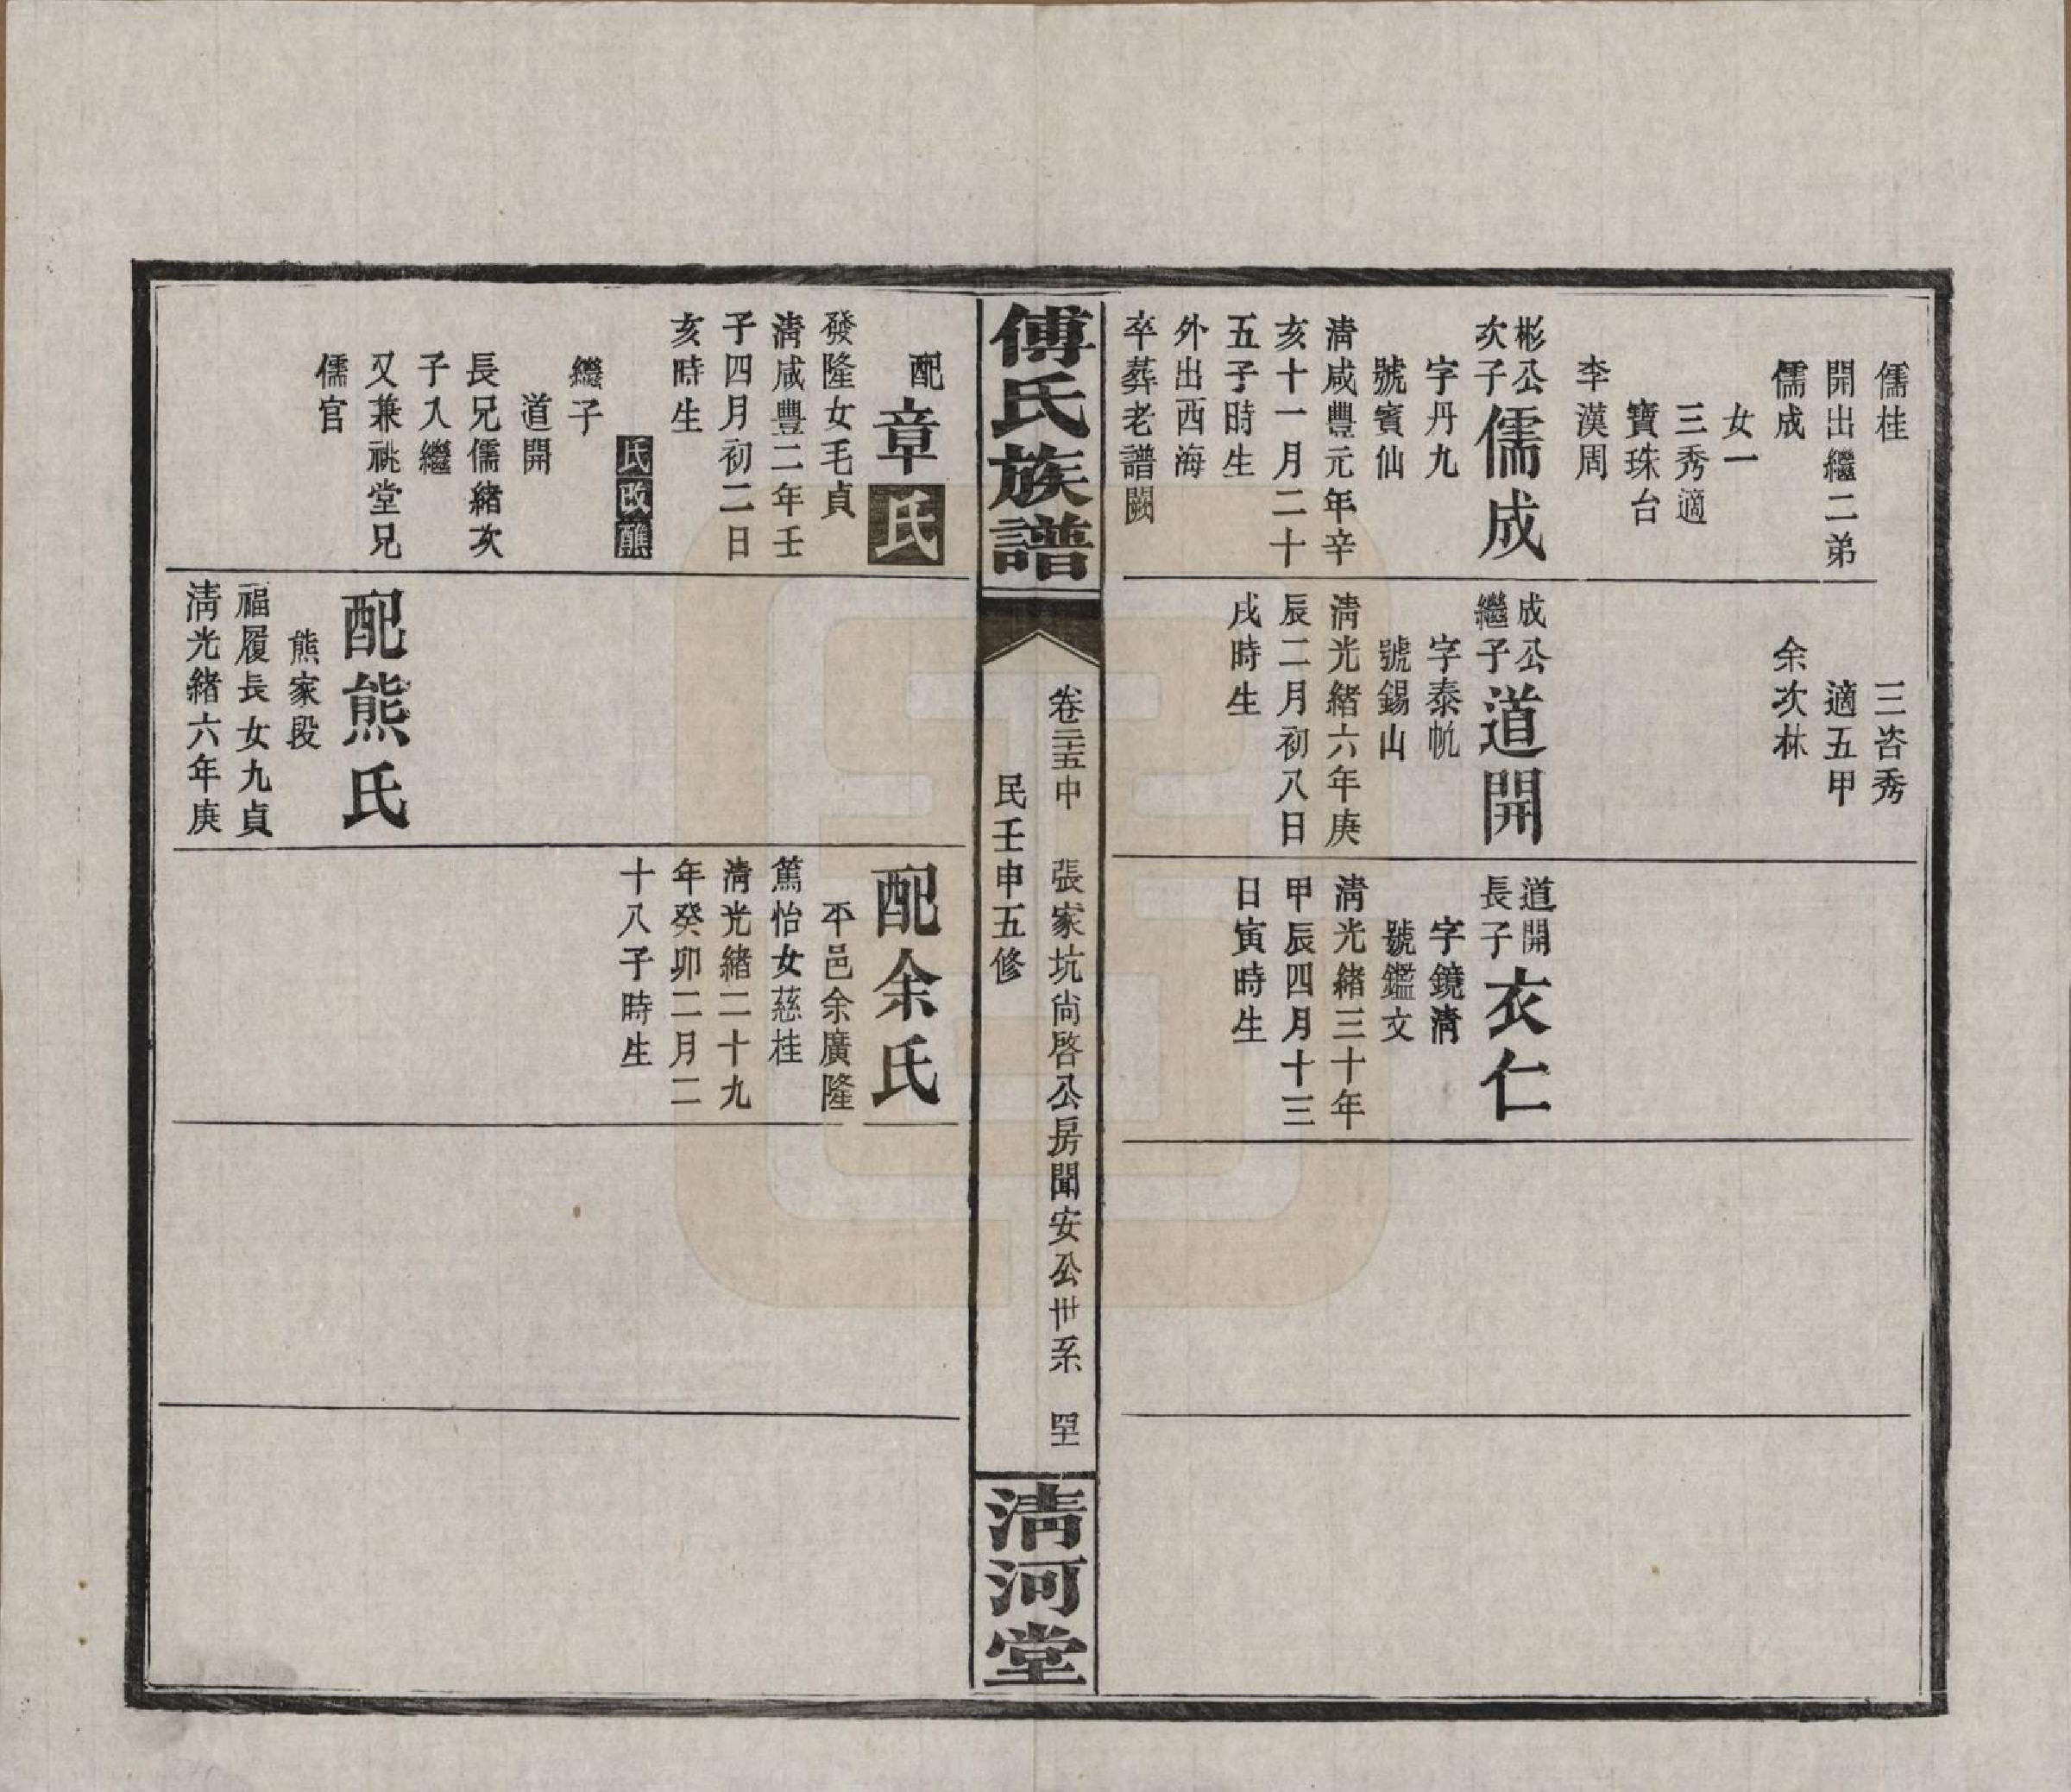 儒桂
開出繼二弟
儒成
女一
三秀適
寶珠台
李漢周
彬公
次子
儒成
字丹九
號賓仙
清咸豐元年辛
亥十一月二十
五子時生
外出西海
卒葬老譜闕
三咨秀
適五甲
余次林
成公
繼子
道開
字泰帆
號錫山
清光緒六年庚
辰二月初八日
戌時生
道開
長子
衣仁
字鏡清
號鑑文
清光緒三十年
甲辰四月十三
日寅時生
傅氏族譜
卷三十五中 張家坑尚啓公房聞安公世系
民壬申五修
清河堂
配章氏
發隆女毛貞
清咸豐二年壬
子四月初二日
亥時生
氏改醮
繼子
道開
長兄儒緒次
子入繼
又兼祧堂兄
儒官
配熊氏
熊家段
福履長女九貞
清光緒六年庚
配余氏
平邑余廣隆
篤怡女慈桂
清光緒二十九
年癸卯二月二
十八子時生